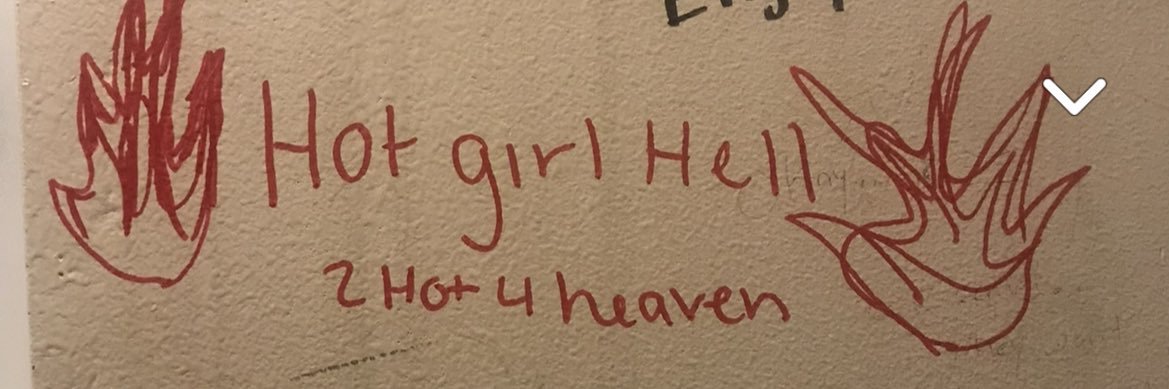 Hot girl Hell
2 Hot 4 heaven